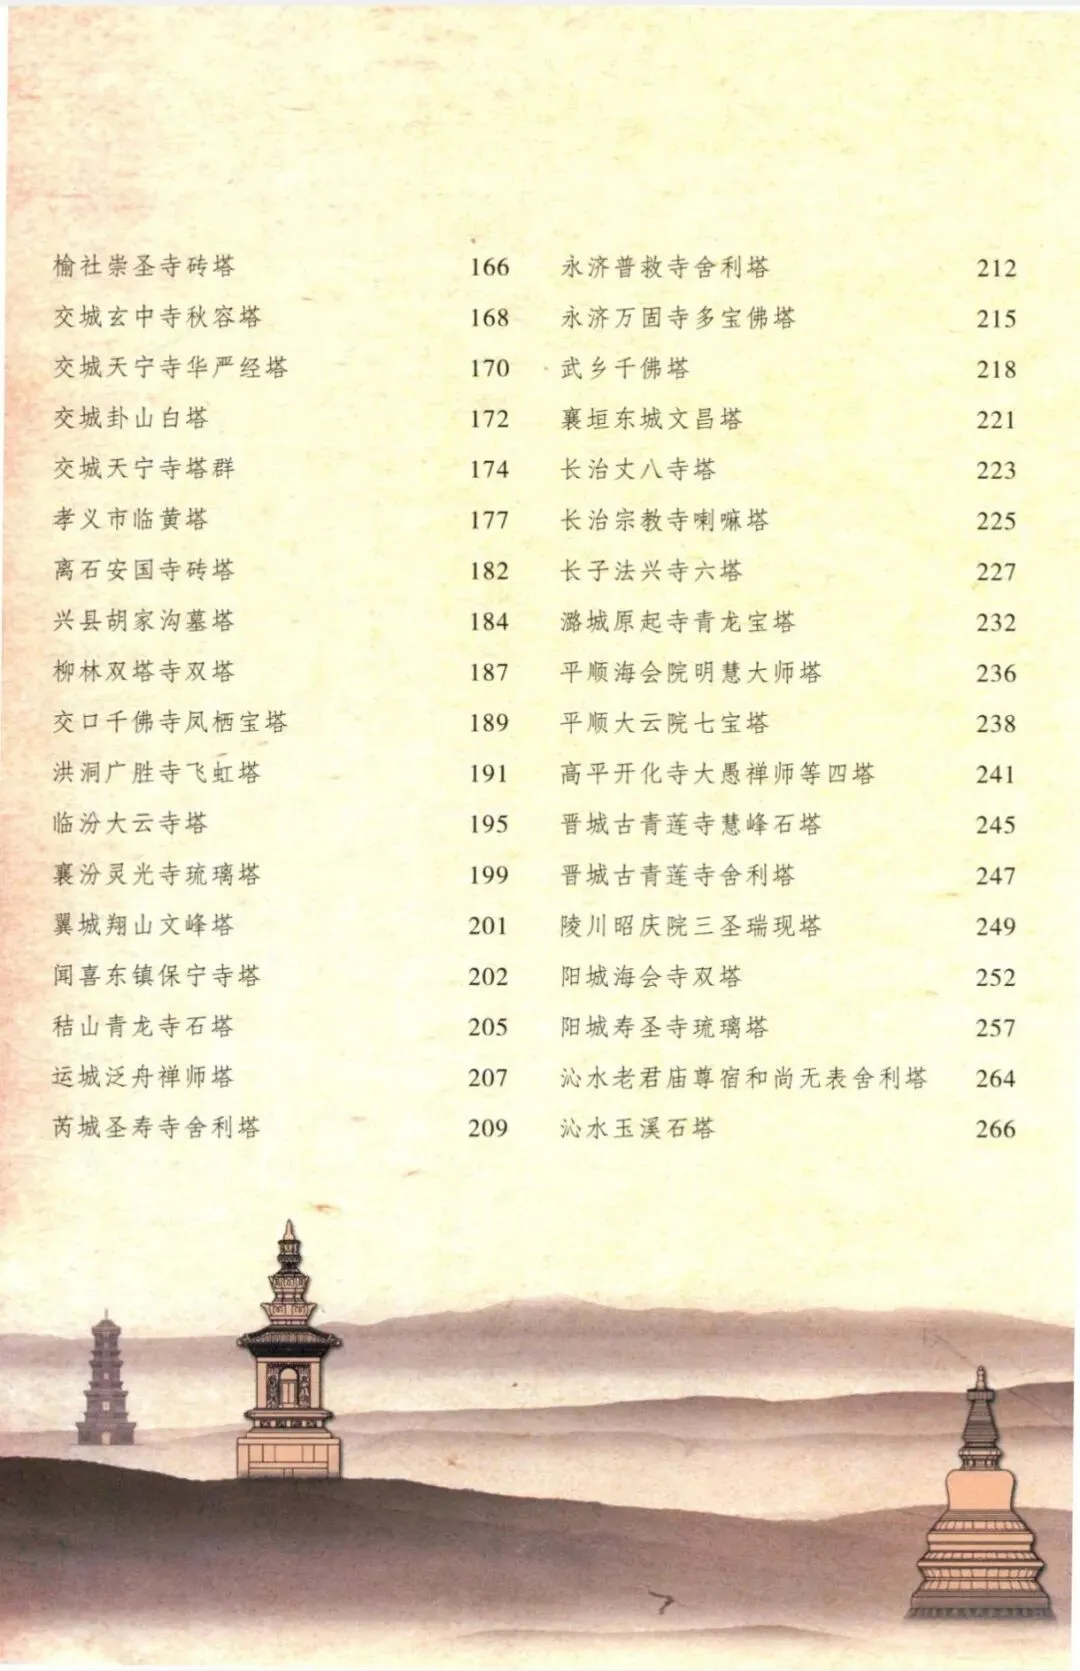 榆社崇圣寺砖塔 166
交城玄中寺秋容塔 168
交城天宁寺华严经塔 170
交城卦山白塔 172
交城天宁寺塔群 174
孝义市临黄塔 177
离石安国寺砖塔 182
兴县胡家沟墓塔 184
柳林双塔寺双塔 187
交口千佛寺凤栖宝塔 189
洪洞广胜寺飞虹塔 191
临汾大云寺塔 195
襄汾灵光寺琉璃塔 199
翼城翔山文峰塔 201
闻喜东镇保宁寺塔 202
秸山青龙寺石塔 205
运城泛舟禅师塔 207
芮城圣寿寺舍利塔 209
永济普救寺舍利塔 212
永济万固寺多宝佛塔 215
武乡千佛塔 218
襄垣东城文昌塔 221
长治丈八寺塔 223
长治宗教寺喇嘛塔 225
长子法兴寺六塔 227
潞城原起寺青龙宝塔 232
平顺海会院明慧大师塔 236
平顺大云院七宝塔 238
高平开化寺大愚禅师等四塔 241
晋城古青莲寺慧峰石塔 245
晋城古青莲寺舍利塔 247
陵川昭庆院三圣瑞现塔 249
阳城海会寺双塔 252
阳城寿圣寺琉璃塔 257
沁水老君庙尊宿和尚无表舍利塔 264
沁水玉溪石塔 266